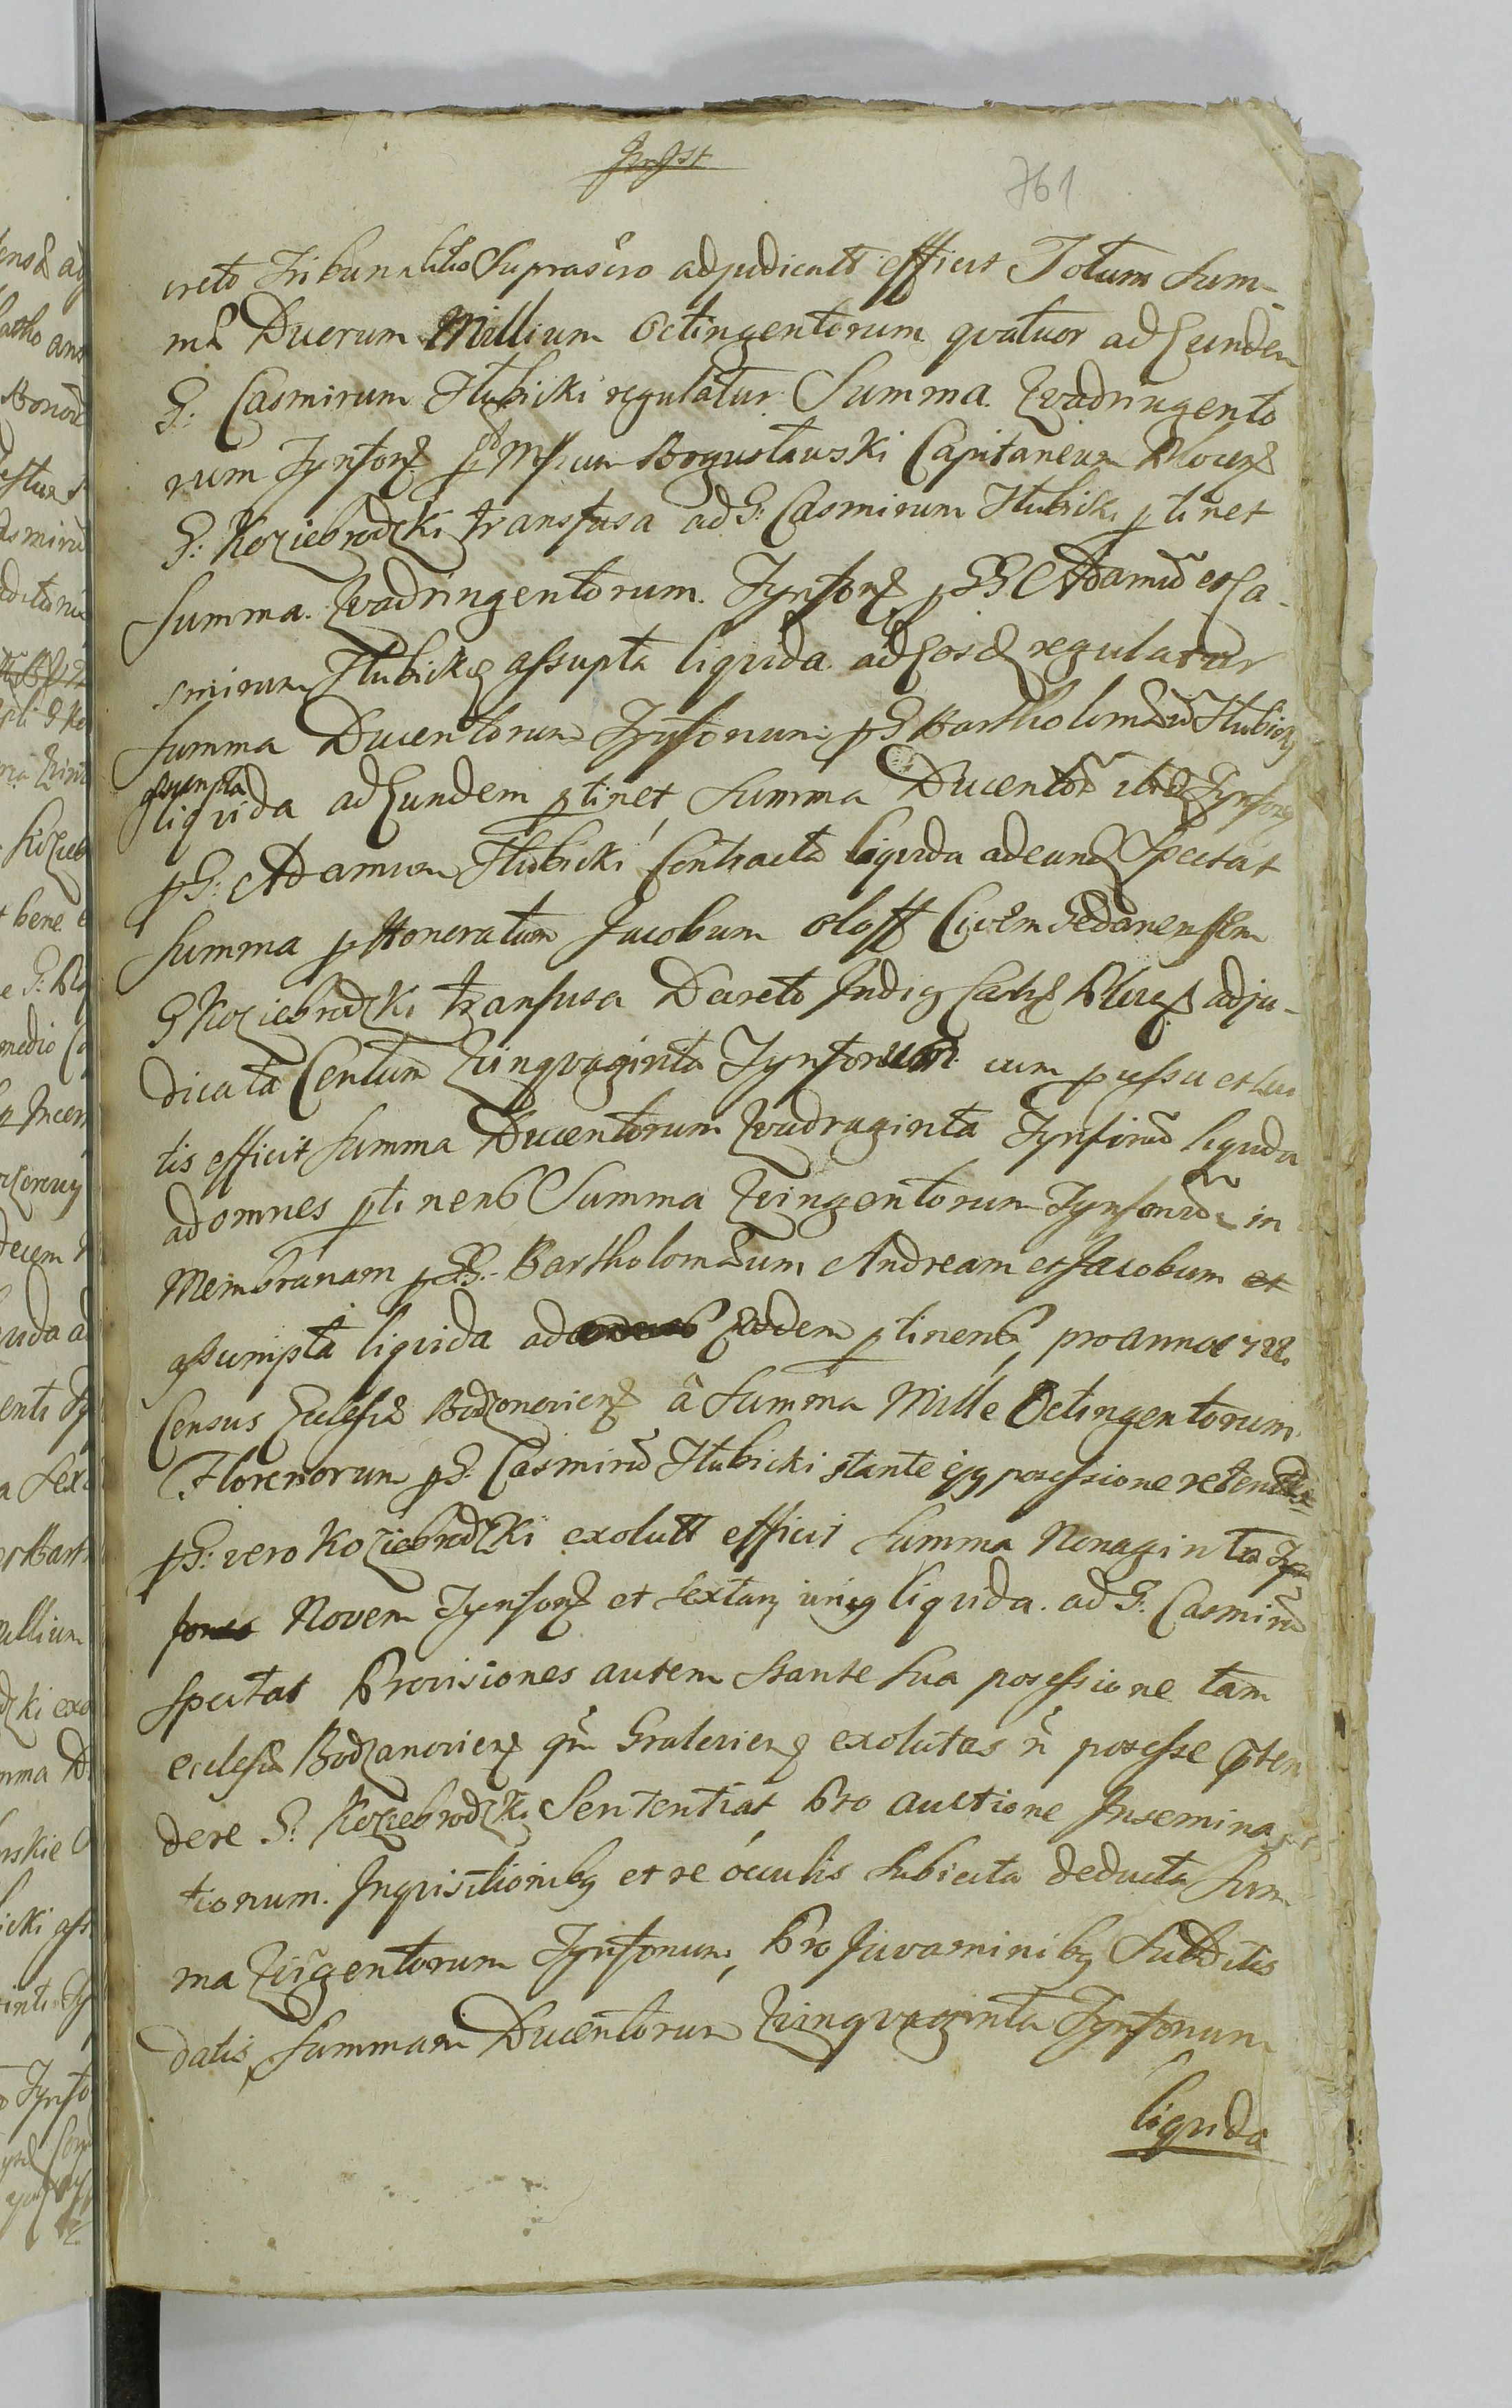 761
creto Tribunalitio Suprascro adjudicatt efficit Totum Sum-
mæ Duorum Millium Octingentorum qvatuor ad Eundem
G: Casmirum Hłubicki regulatur Summa Qvadringento
rum Tynfonę p Mficum Bogusławski Capitaneum Plocenę
G: Koziebrodzki transfusa ad G: Casmirum Hłubicki ptinet
Summa. Qvadringentorum. Tynfonę p GG Adamũ et Ca-
smirum Hłubickę assupta liqvida ad Eosdę regulatur
Summa Ducentorum Tynfonum p G Bartholomæũ Hłubicki
assumpta
liqvida ad Eundem ptinet, Summa Ducentorũ Tynfonę
p G: Adamum Hłubicki Contracta liqvida ad eundę Spectat
Summa p Honoratum Jacobum Oloff Civem Gedanensem
G Koziebrodzki transfusa Decreto Judig Castrę Plocę adju-
dicata Centum Qvinqvaginta Tynfonum cum
tis efficit Summa Ducentorum Qvadraginta Tynfonũ liqvida
ad omnes ptinens Summa Qvingentorum Tynfonũ in
Membranam p GG. Bartholomæum Andream et Jacobum et
assumpta liqvida ad Eosdem ptinens, pro anno
Census Eclesiæ Bodzonovienę â Summa Mille Octingentorum
Florenorum p G. Casmirũ Hłubicki stante ejg possessione
p G: vero Koziebrodzki exolutt efficit Summa Nonaginta Tyn
fones Novem Tynfonę et Sextam unig liqvida. ad G: Casmirũ
Spectat Provisiones autem Stante Sua posessione tam
eclesiæ Bodzanovienę qm̃ Gralevienę exolutas ñ potesse p̃ten
dere G: Koziebrodzki Sententiat Pro auctione Insemina
tionum. Inqvisitionibg et re occulis Subiecta deducta Sum
ma Qvĩgentorum Tynfonum, Pro Juvaminibg Subditis
datis Summam Ducentorum Qvinqvaginta Tynfonum
liqvida